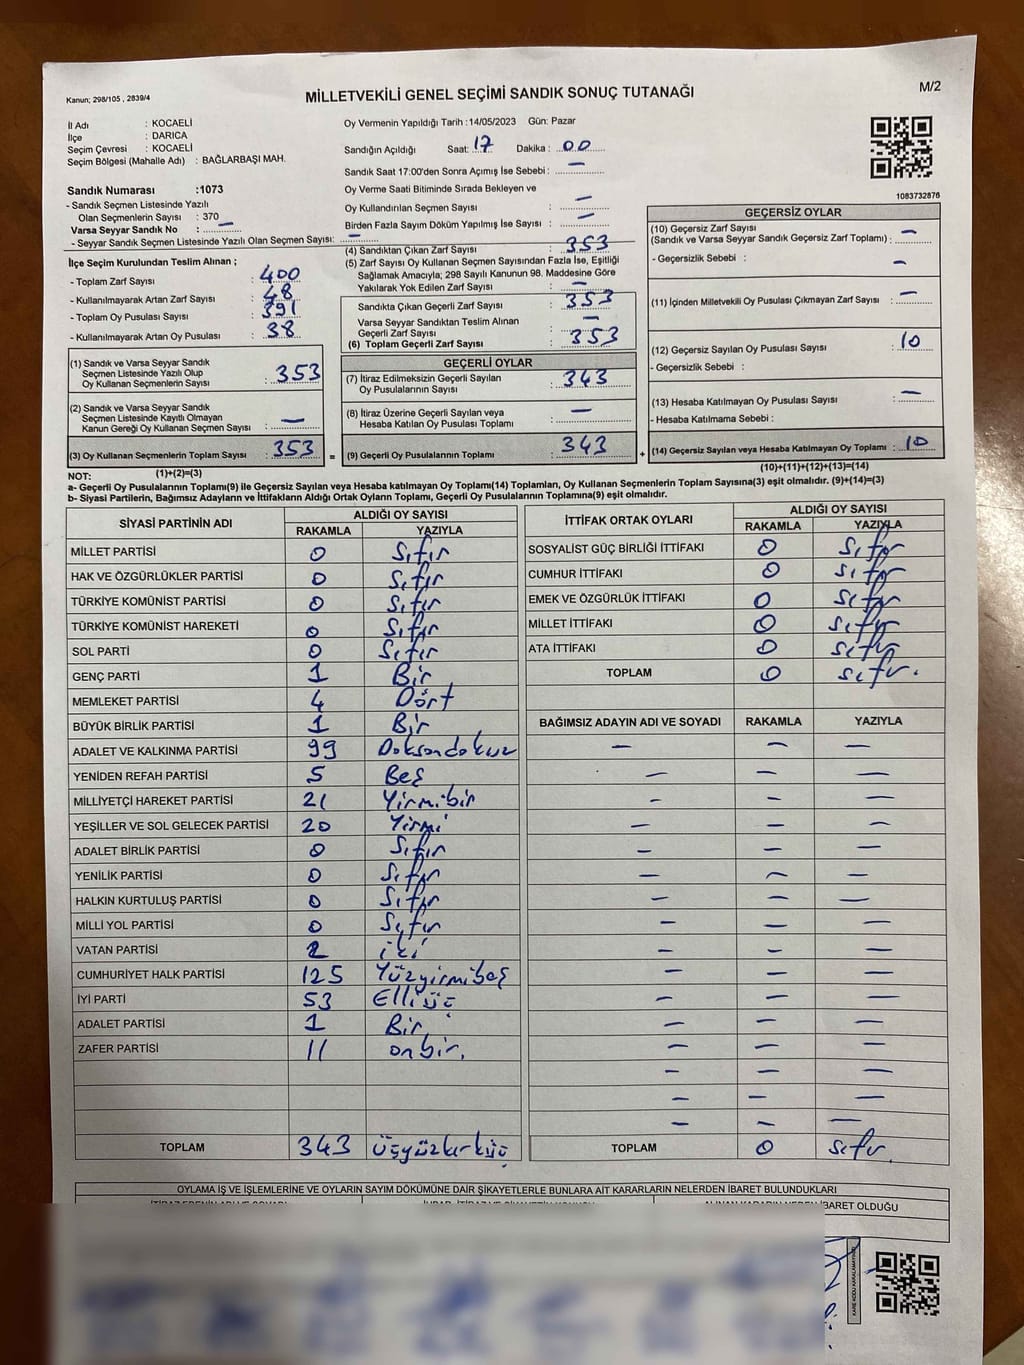 Kanun; 298/105 , 2839/4
MİLLETVEKİLİ GENEL SEÇİMİ SANDIK SONUÇ TUTANAĞI
M/2
İl Adı : KOCAELİ
İlçe : DARICA
Seçim Çevresi : KOCAELİ
Seçim Bölgesi (Mahalle Adı) : BAĞLARBAŞI MAH.
Sandık Numarası :1073
- Sandık Seçmen Listesinde Yazılı
Olan Seçmenlerin Sayısı : 370
Varsa Seyyar Sandık No : —
- Seyyar Sandık Seçmen Listesinde Yazılı Olan Seçmen Sayısı: —
Oy Vermenin Yapıldığı Tarih :14/05/2023 Gün: Pazar
Sandığın Açıldığı Saat: 17 Dakika : 00
Sandık Saat 17:00'den Sonra Açımış İse Sebebi : —
Oy Verme Saati Bitiminde Sırada Bekleyen ve
Oy Kullandırılan Seçmen Sayısı : —
Birden Fazla Sayım Döküm Yapılmış İse Sayısı : —
1083732876
İlçe Seçim Kurulundan Teslim Alınan ;
- Toplam Zarf Sayısı : 400
- Kullanılmayarak Artan Zarf Sayısı : 48
- Toplam Oy Pusulası Sayısı : 391
- Kullanılmayarak Artan Oy Pusulası : 38
(1) Sandık ve Varsa Seyyar Sandık
Seçmen Listesinde Yazılı Olup
Oy Kullanan Seçmenlerin Sayısı : 353
(2) Sandık ve Varsa Seyyar Sandık
Seçmen Listesinde Kayıtlı Olmayan
Kanun Gereği Oy Kullanan Seçmen Sayısı : —
(3) Oy Kullanan Seçmenlerin Toplam Sayısı : 353 =
(4) Sandıktan Çıkan Zarf Sayısı : 353
(5) Zarf Sayısı Oy Kullanan Seçmen Sayısından Fazla İse, Eşitliği
Sağlamak Amacıyla; 298 Sayılı Kanunun 98. Maddesine Göre
Yakılarak Yok Edilen Zarf Sayısı : —
Sandıkta Çıkan Geçerli Zarf Sayısı : 353
Varsa Seyyar Sandıktan Teslim Alınan
Geçerli Zarf Sayısı : —
(6) Toplam Geçerli Zarf Sayısı : 353
GEÇERLİ OYLAR
(7) İtiraz Edilmeksizin Geçerli Sayılan
Oy Pusulalarının Sayısı : 343
(8) İtiraz Üzerine Geçerli Sayılan veya
Hesaba Katılan Oy Pusulası Toplamı : —
(9) Geçerli Oy Pusulalarının Toplamı : 343 +
GEÇERSİZ OYLAR
(10) Geçersiz Zarf Sayısı
(Sandık ve Varsa Seyyar Sandık Geçersiz Zarf Toplamı) : —
- Geçersizlik Sebebi : —
(11) İçinden Milletvekili Oy Pusulası Çıkmayan Zarf Sayısı : —
(12) Geçersiz Sayılan Oy Pusulası Sayısı : 10
- Geçersizlik Sebebi :
(13) Hesaba Katılmayan Oy Pusulası Sayısı : —
- Hesaba Katılmama Sebebi :
(14) Geçersiz Sayılan veya Hesaba Katılmayan Oy Toplamı : 10
NOT: (1)+(2)=(3) (10)+(11)+(12)+(13)=(14)
a- Geçerli Oy Pusulalarının Toplamı(9) ile Geçersiz Sayılan veya Hesaba Katılmayan Oy Toplamı(14) Toplamları, Oy Kullanan Seçmenlerin Toplam Sayısına(3) eşit olmalıdır. (9)+(14)=(3)
b- Siyasi Partilerin, Bağımsız Adayların ve İttifakların Aldığı Ortak Oyların Toplamı, Geçerli Oy Pusulalarının Toplamına(9) eşit olmalıdır.
SİYASİ PARTİNİN ADI ALDIĞI OY SAYISI
RAKAMLA YAZIYLA
MİLLET PARTİSİ 0 Sıfır
HAK VE ÖZGÜRLÜKLER PARTİSİ 0 Sıfır
TÜRKİYE KOMÜNİST PARTİSİ 0 Sıfır
TÜRKİYE KOMÜNİST HAREKETİ 0 Sıfır
SOL PARTİ 0 Sıfır
GENÇ PARTİ 1 Bir
MEMLEKET PARTİSİ 4 Dört
BÜYÜK BİRLİK PARTİSİ 1 Bir
ADALET VE KALKINMA PARTİSİ 99 Doksandokuz
YENİDEN REFAH PARTİSİ 5 Beş
MİLLİYETÇİ HAREKET PARTİSİ 21 Yirmibir
YEŞİLLER VE SOL GELECEK PARTİSİ 20 Yirmi
ADALET BİRLİK PARTİSİ 0 Sıfır
YENİLİK PARTİSİ 0 Sıfır
HALKIN KURTULUŞ PARTİSİ 0 Sıfır
MİLLİ YOL PARTİSİ 0 Sıfır
VATAN PARTİSİ 2 iki
CUMHURİYET HALK PARTİSİ 125 Yüzyirmibeş
İYİ PARTİ 53 Elliüç
ADALET PARTİSİ 1 Bir
ZAFER PARTİSİ 11 onbir.
TOPLAM 343 Üçyüzkırküç
İTTİFAK ORTAK OYLARI ALDIĞI OY SAYISI
RAKAMLA YAZIYLA
SOSYALİST GÜÇ BİRLİĞİ İTTİFAKI 0 Sıfır
CUMHUR İTTİFAKI 0 Sıfır
EMEK VE ÖZGÜRLÜK İTTİFAKI 0 Sıfır
MİLLET İTTİFAKI 0 Sıfır
ATA İTTİFAKI 0 Sıfır
TOPLAM 0 sıfır.
BAĞIMSIZ ADAYIN ADI VE SOYADI RAKAMLA YAZIYLA
— — —
— — —
— — —
— — —
— — —
— — —
— — —
— — —
— — —
— — —
— — —
— — —
— — —
— — —
— — —
— — —
TOPLAM 0 sıfır.
OYLAMA İŞ VE İŞLEMLERİNE VE OYLARIN SAYIM DÖKÜMÜNE DAİR ŞİKAYETLERLE BUNLARA AİT KARARLARIN NELERDEN İBARET BULUNDUKLARI
İBARET OLDUĞU